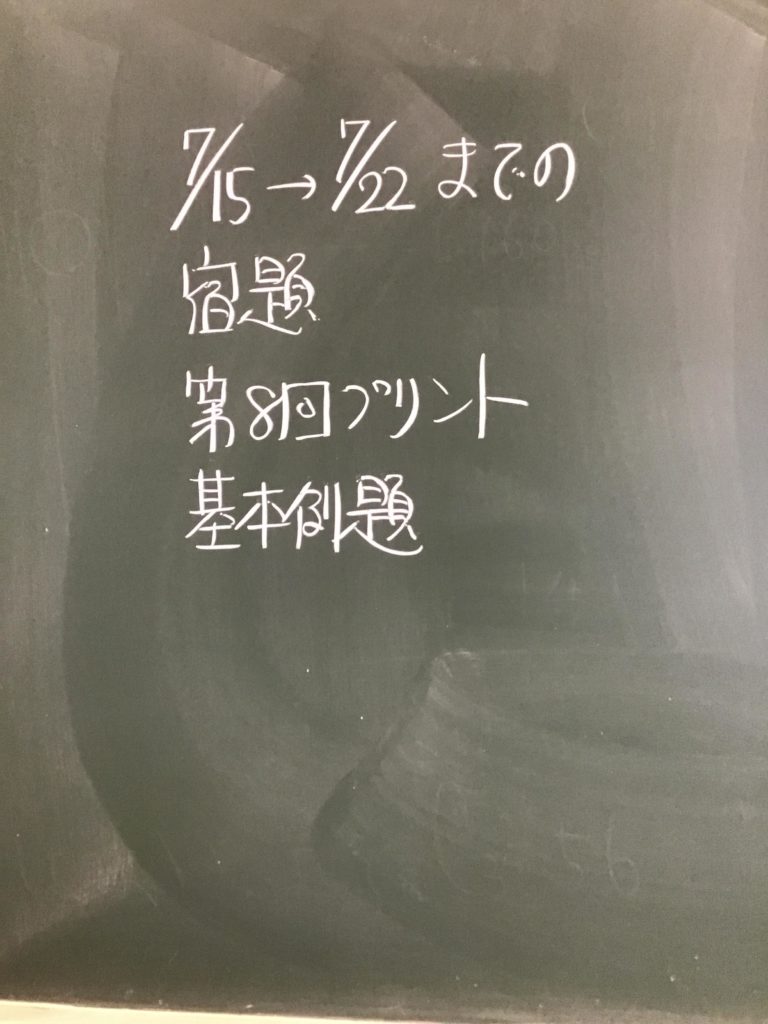 7/15→7/22 までの
宿題
第8回プリント
基本例題